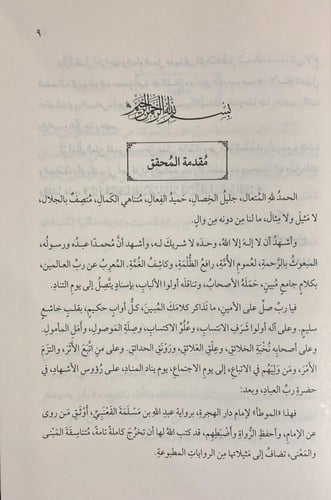 ٩
بسم الله الرحمن الرحيم
مُقدمة المُحقق
الحمدُ للهِ المُتعال، جليلُ الخِصال، حَمِيدُ الفِعال، مُتناهي الكَمال، مُتصِفٌ بالجلال،
لا مَثيلَ ولا مِثالَ، ما لنا مِن دونِه مِن والٍ.
وأشـهدُ أن لا إلـه إلا اللهُ، وحـدَه لا شـريكَ لـه، وأشـهدُ أنَّ مُحمدًا عبدُه ورسولُه،
المبعوثُ بالرَّحمةِ، لعُمومِ الأمَّةِ، رافعُ الظُّلْمَةِ، وكاشِفُ الغُمَّة، المُعرِبُ عن ربِّ العالمين،
بكلامٍ جامعٍ مُبينٍ، حَمَلَهُ الأصْحابُ، وتناقَلَه أولو الألبابِ، بإسنادٍ يتَّصلُ إلى يومِ التنادِ.
فيا ربِّ صلِّ على الأمين، ما تذاكر كلامَك المُبين، كلُّ أوابٍ حكيم، بقلبٍ خاشعٍ
سليم. وعلى آله أولو شَرَفِ الانتساب، وعُلُوِّ الاكتساب، وصِلَةِ المَوصولِ، وأملِ المأمولِ.
وعلى أصحابِه نُخْبَةِ الخلائق، وعِلَقِ العَلائق، ورَوْنَقِ الحدائق. وعلى من اتَّبَعَ الأثَرَ، والتزَم
الأمْرَ، ومَن وَلِيَهُم في الاتباع، إلى يومِ الاجتماع، يومَ يناد المناد، على رُؤوسِ الأشهاد، في
حضرةِ ربِّ العباد، وبعد:
فهذا «الموطأ» لإمامِ دار الهجرةِ، بروايةِ عبدِ اللهِ بنِ مَسْلَمَةَ القَعْنَبِيِّ، أوْثقِ مَن روى
عن الإمامِ، وأحفظِ الرُّواةِ وأضْبَطِهم، قد كتب اللهُ لها أن تخرُجَ كاملةً تامةً، مُتناسِقةَ المَبْنى
والمَعْنى، تضافُ إلى مَثيلاتِها مِن الرواياتِ المطبوعةِ.